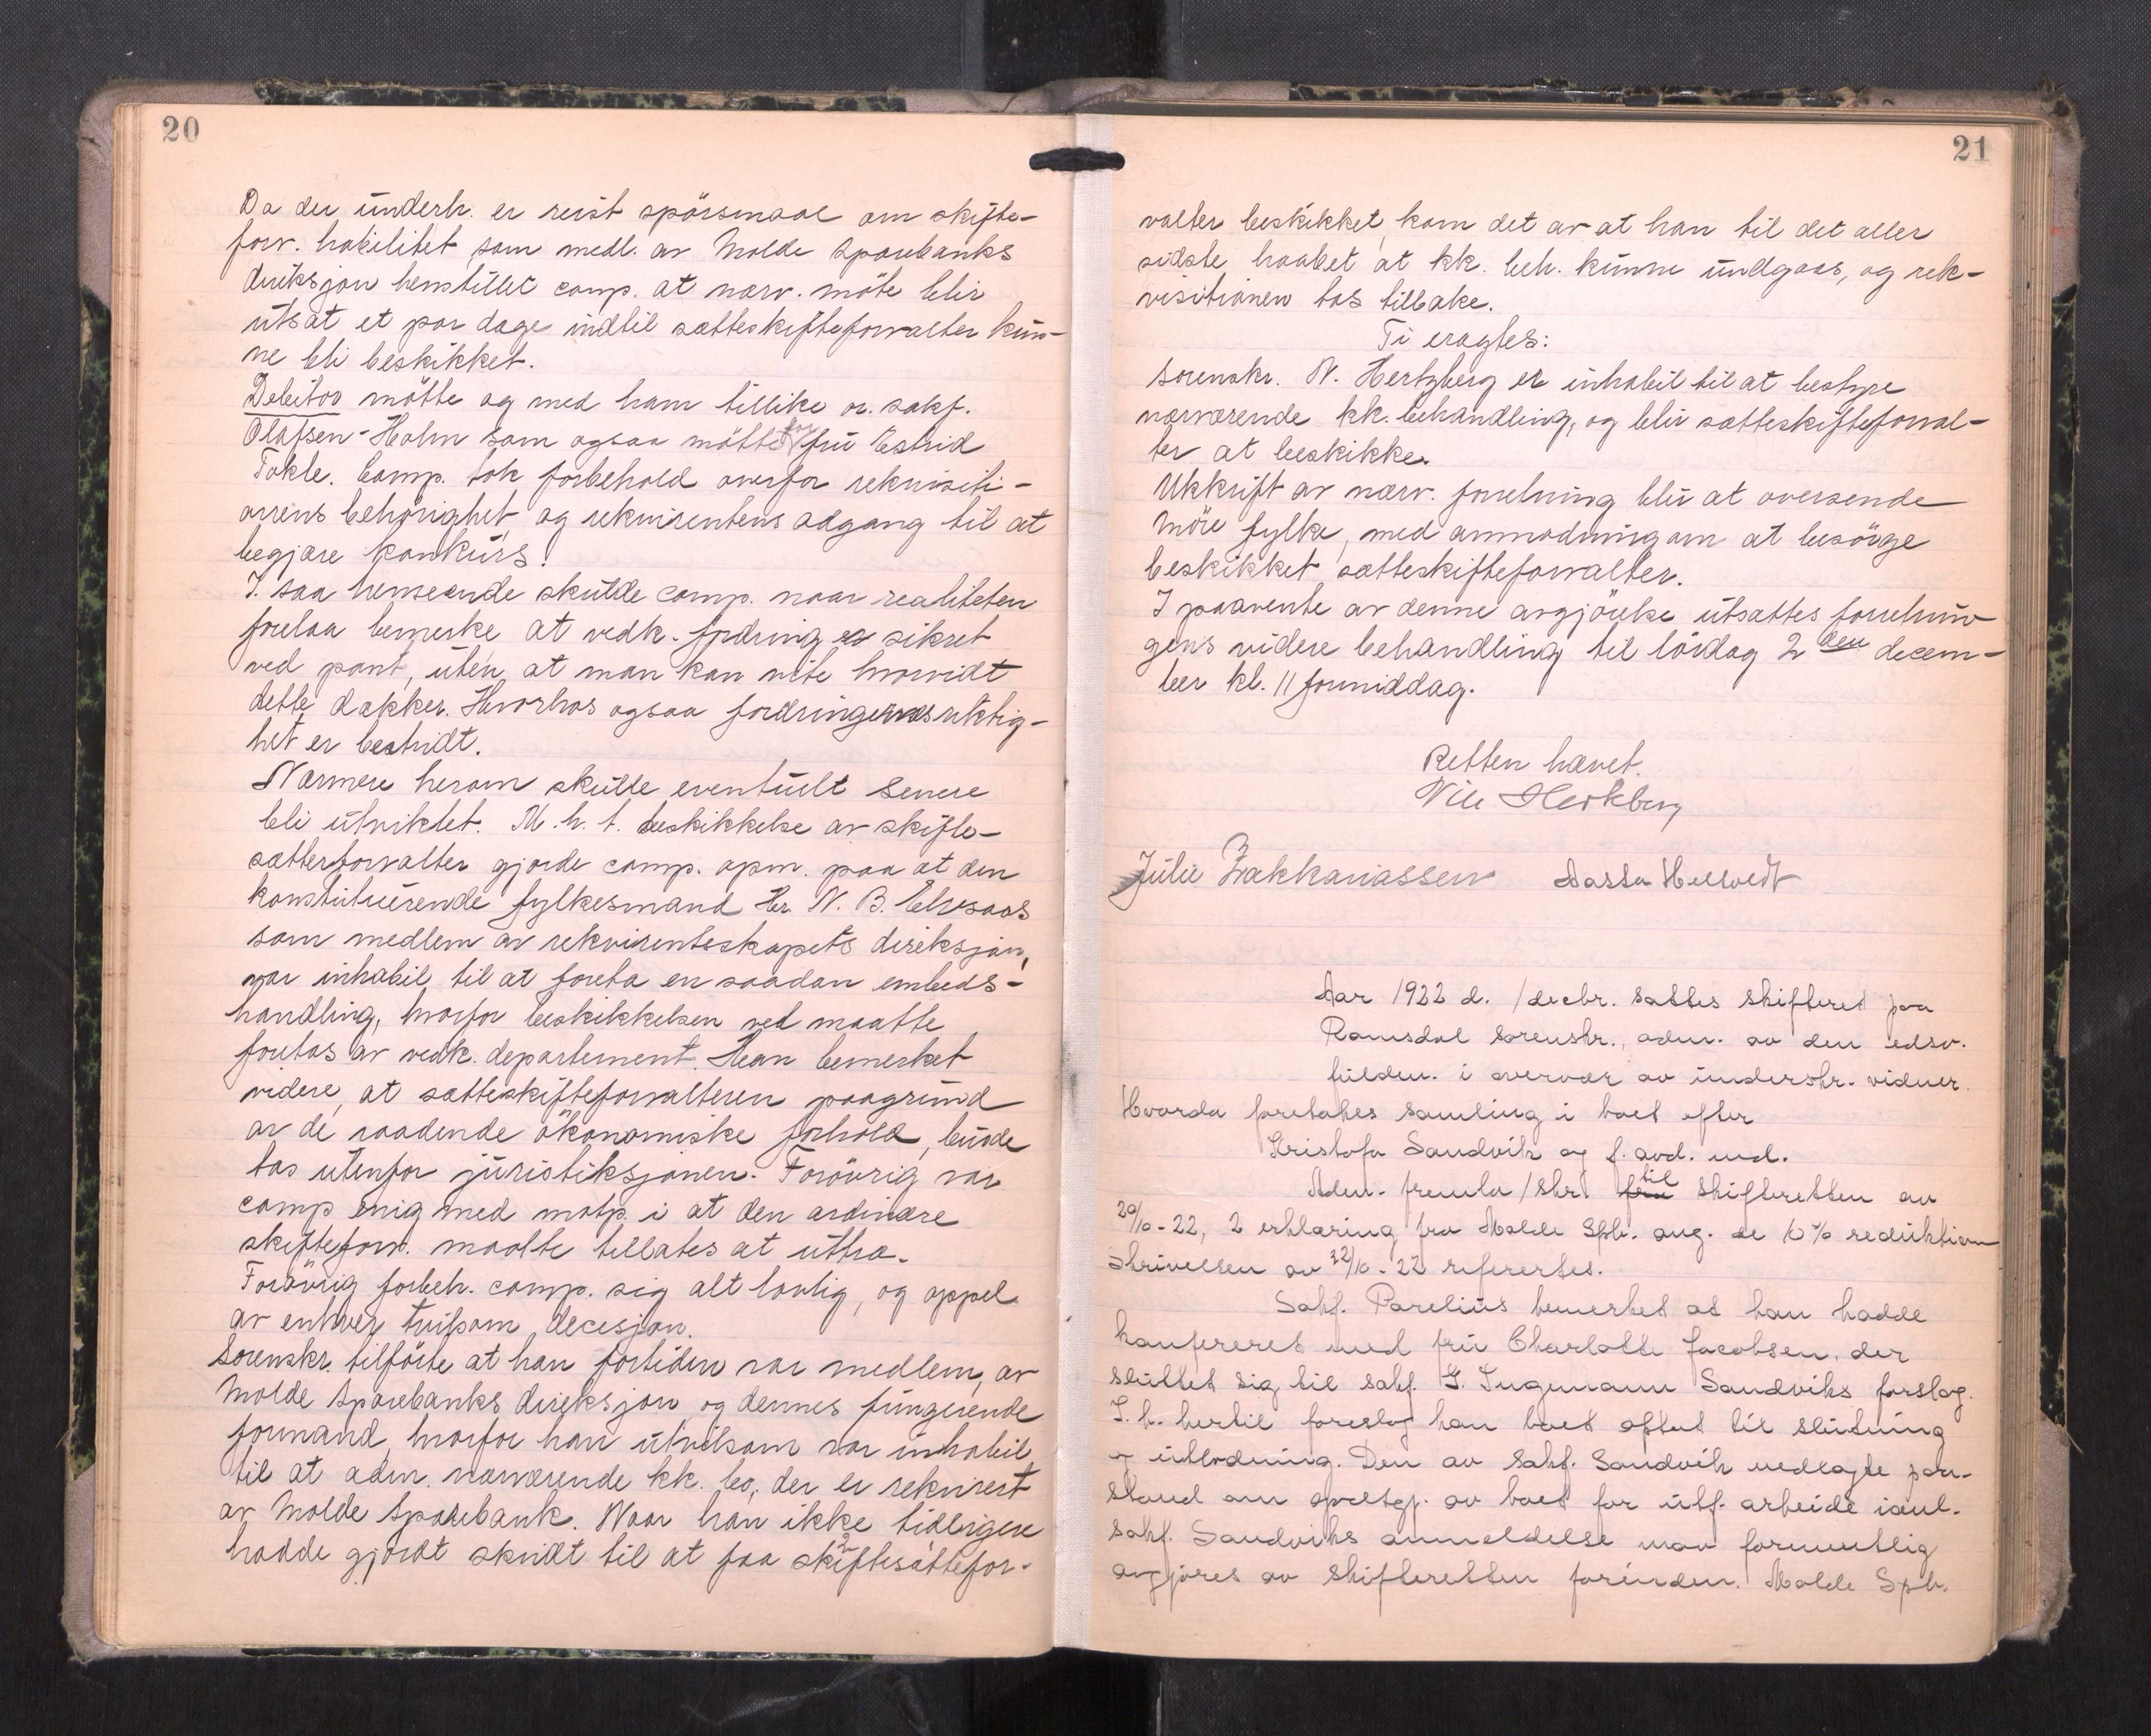 20
Da der underh. er reist spörsmaal om skifte-
forv. habilitet som medl. av Molde Sparebanks
direksjon henstillet comp. at nærv. möte blir
utsat et par dage indtil sætteskifteforvalter kun-
ne bli beskikket.
Debitor mötte og med ham tillike or. sakf.
Olafsen-Holm som ogsaa mötte for fru Estrid
Tokle. Comp. tok forbehold overfor rekvisiti-
onens behörighet og rekvirentens adgang til at
begjære konkurs.
I saa henseende skulde comp. naar realiteten
forelaa bemerke at vedk. fordring er sikret
ved pant, uten at man kan vite hvorvidt
dette dækker. Hvorhos ogsaa fordringens riktig-
het er bestridt.
Nærmere herom skulle eventuelt senere
bli utviklet. M.h.t. beskikkelse av skifte-
sætterforvalter gjorde comp. opm. paa at den
konstituerende fylkesmand Hr. N. B.
som medlem av rekvirentskapets direksjon,
var inhabil til at foreta en saadan embeds-
handling, hvorfor beskikkelsen ved maatte
foretas av vedk. departement. Han bemerket
videre, at sætteskifteforvalteren paagrund
av de raadende ökonomiske forhold, burde
tas utenfor juristiksjonen. Forövrig var
comp enig med motp. i at den ordinære
skifteforv. maatte tillates at uttra.
Forövrig forbeh. comp. sig alt lovlig, og appel
av enhver tvilsom decesjon.
Sorenskr. tilförte at han fortiden var medlem av
Molde Sparebanks direksjon og dennes fungerende
formand, hvorfor han utvilsom var inhabil
til at adm. nærværende kk. bo, der er rekvirert
av Molde Sparebank. Naar han ikke tidligere
hadde gjordt skridt til at faa skiftesættefor-
21
valter beskikket, kom det av at han til det aller
sidste haabet at kk. beh. kunne undgaas, og rek-
visitionen tas tilbake.
Ti eragtes:
Sorenskr. N. Hertzberg er inhabil til at bestyre
nærværende kk. behandling, og blir sætteskifteforval-
ter at beskikke.
Utskrift av nærv. forretning blir at oversende
Möre fylke, med anmodning om at besörge
beskikket sætteskifteforvalter.
I paavente av denne avgjörelse utsættes forretnin-
gens videre behandling til lördag 2 den decem-
ber kl. 11 formiddag.
Retten hævet.
Nils Hertzberg
Julie Zakkariassen Aasta
Aar 1922 d. 1 decbr. sattes skifteret paa
Romsdal sorenskr., adm. av den edsv.
fuldm. i overvær av underskr. vidner.
Hvorda foretokes samling i boet efter
Kristofer Sandvik og f. avd. md.
Adm. fremla 1 skr. fra til skifteretten av
20/10-22, 2 erklæring fra Molde Spb. ang. de 10 % reduktion
Skrivelsen av 22/10-22 refererles.
Sakf. Parelius bemerket at han hadde
konfereret med fru Charlotte Jacobsen, der
sluttet sig til sakf. G. Ingemann Sandviks forslag.
I h. hertil foreslog han boet optat til slutning
og utlodning. Den av sakf. Sandvik nedlagte paa-
stand om godtgj. av boet for utf. arbeide
sakf. Sandviks anmeldelse maa formentlig
avgjöres av skifteretten forinden. Molde Spb.